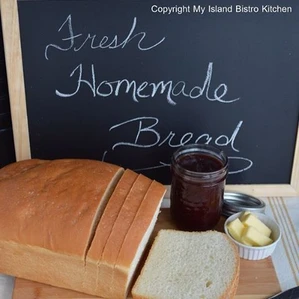 Copyright My Island Bistro Kitchen
Fresh
Homemade
Bread